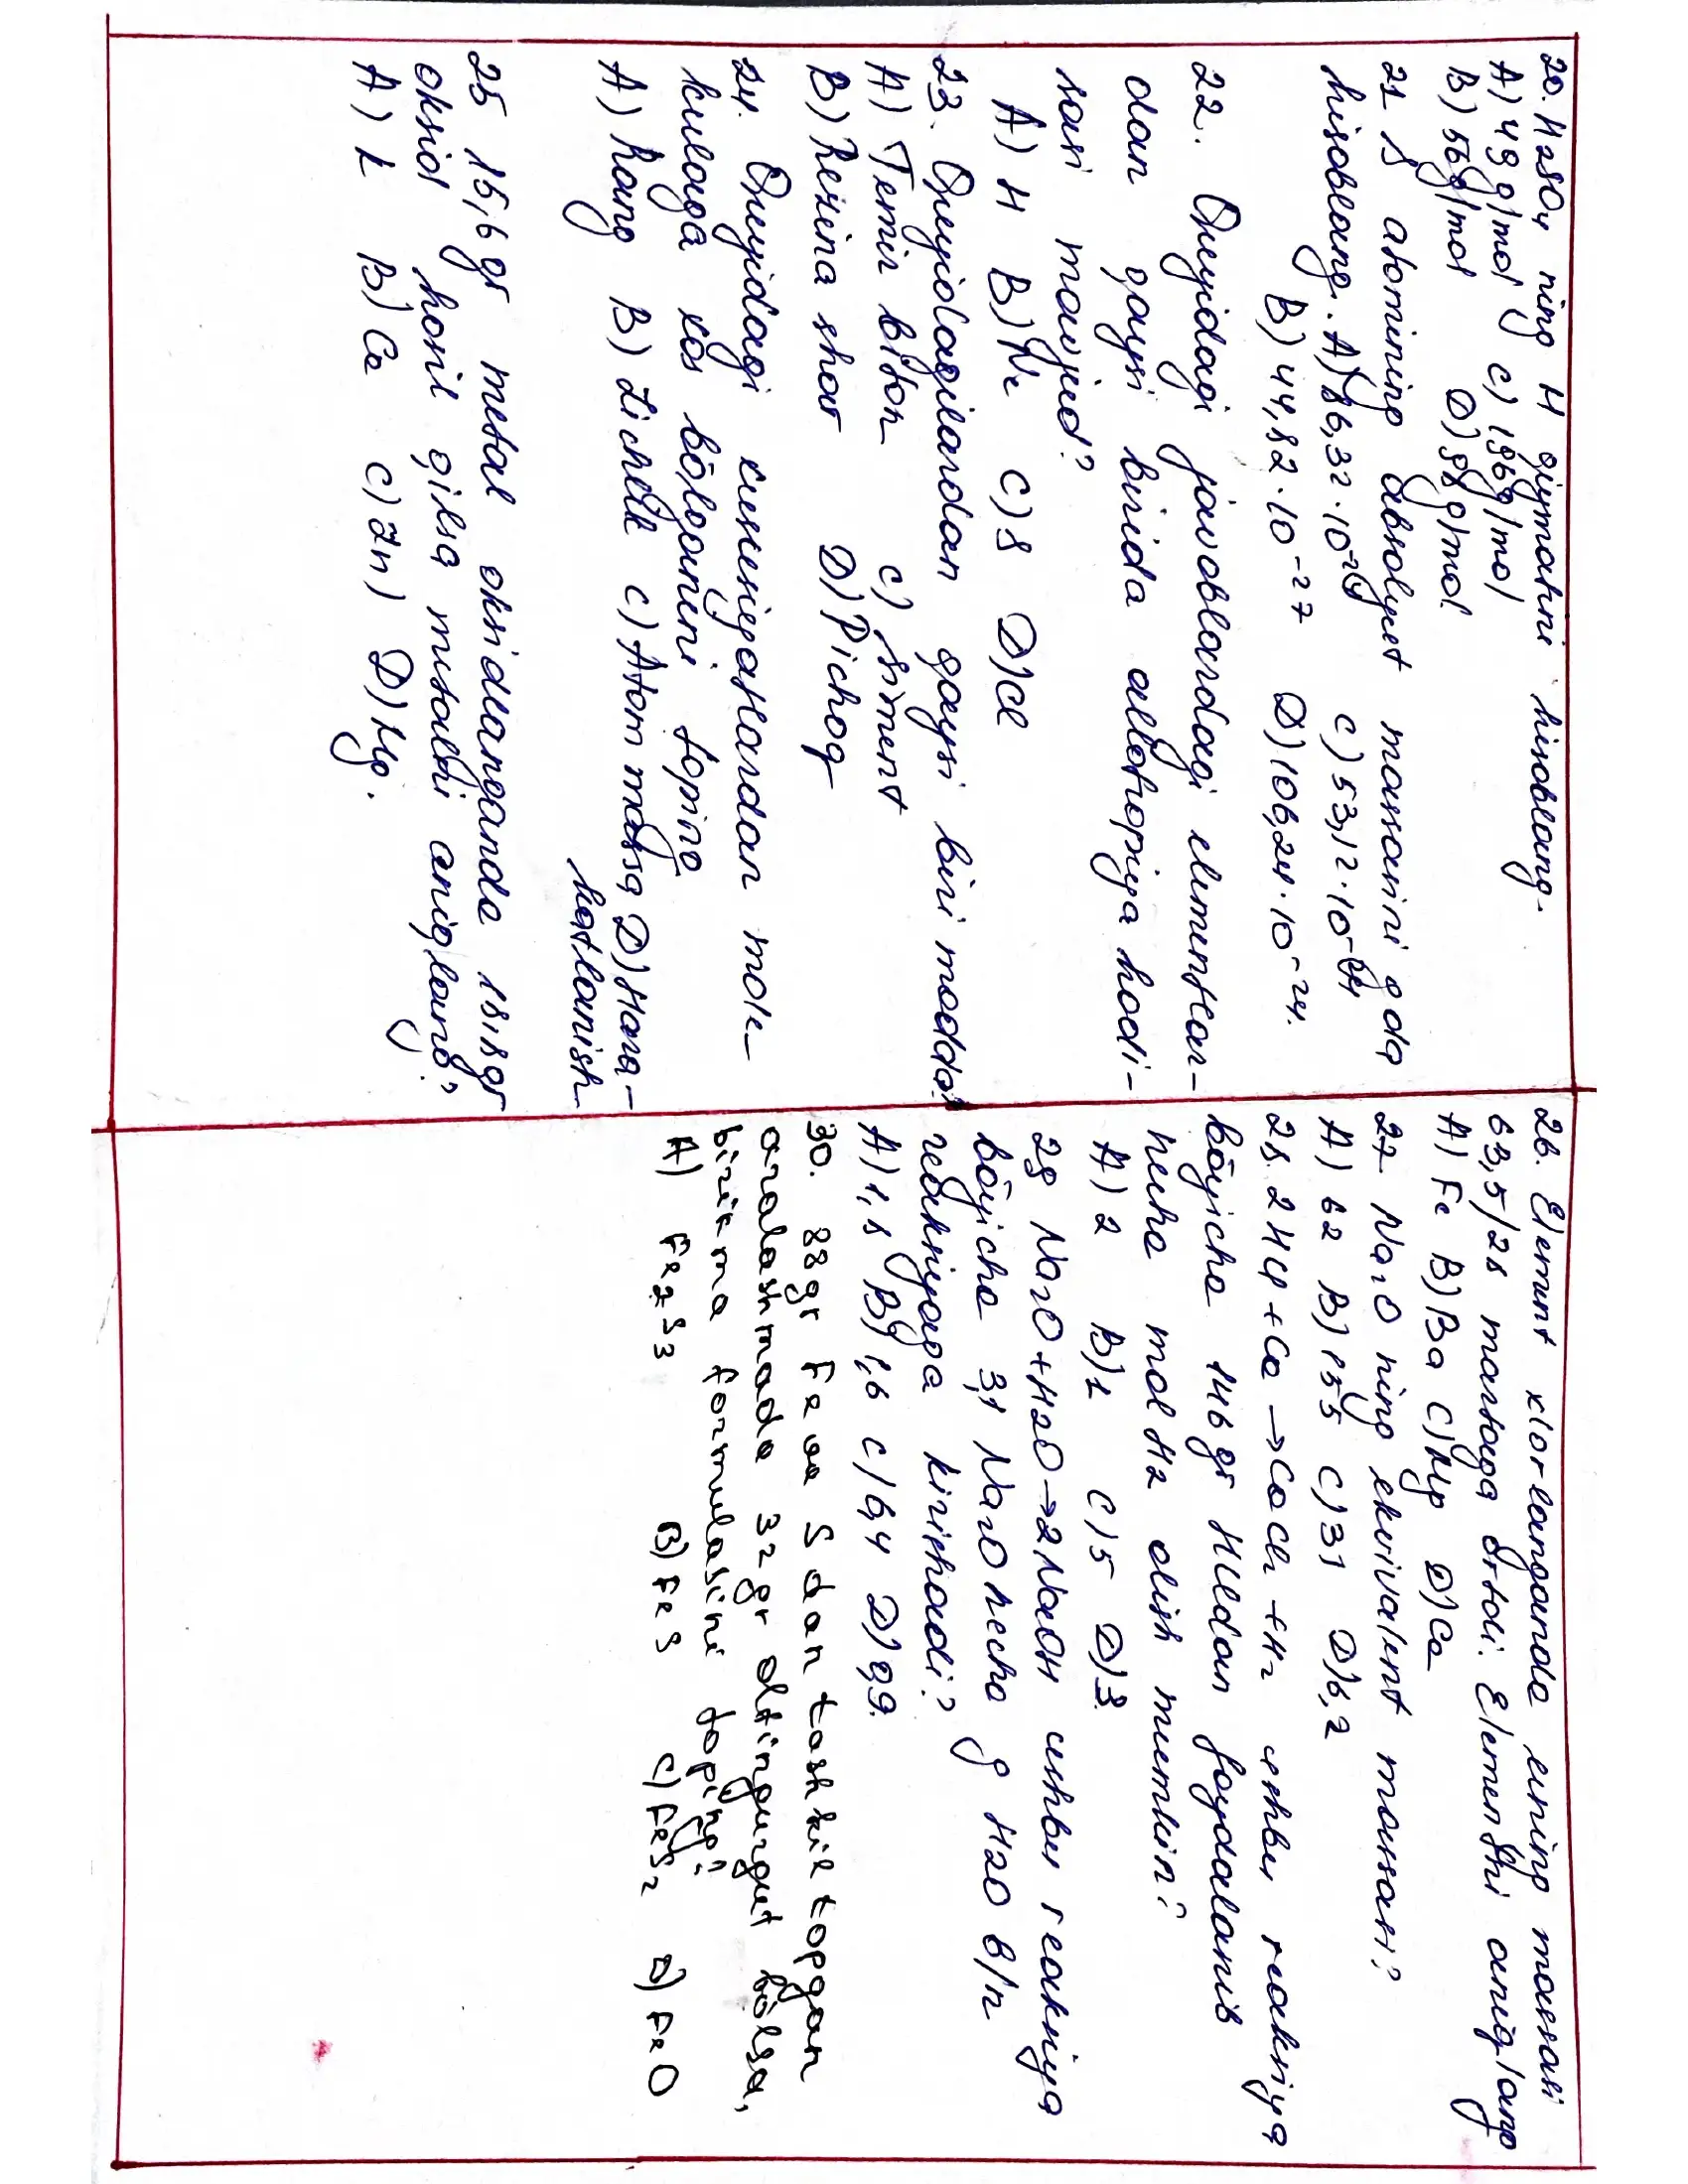 20. H2SO4 ning H qiymatini hisoblang.
A) 49 g/mol C) 196 g/mol
B) 56 g/mol D) 98 g/mol
21 S atomining absolyut massasini g da
hisoblang. A) 86,32·10⁻²⁴ C) 53,12·10⁻²⁴
B) 44,82·10⁻²⁷ D) 106,24·10⁻²⁴.
22. Quyidagi javoblardagi elementlar-
dan qaysi birida allotropiya hodi-
sasi mavjud?
A) H B) Ne C) S D) Cl
23. Quyidagilardan qaysi biri modda?
A) Temir biton C) siment
B) Rezina shar D) Pichoq
24. Quyidagi xususiyatlardan mole-
kulaga xos bõlganini toping
A) Rang B) Zichlik C) Atom massa D) Hara-
katlanish
25 15,6 gr metal oksidlanganda 18,8 gr
oksid hosil qilsa metalni aniqlang?
A) K B) Ca C) Zn) D) Mg.
26. Element xlorlanganda uning massasi
63,5/28 martaga õrtdi. Elementni aniqlang
A) Fe B) Ba C) Mg D) Ca
27. Na2O ning ekvivalent massasi?
A) 62 B) 155 C) 31 D) 6,2
28. 2HCl + Ca → CaCl2 + H2 ushbu reaksiya
bõyicha 146 gr HCldan foydalanib
necha mol H2 olish mumkin?
A) 2 B) 1 C) 5 D) 3.
29 Na2O + H2O → 2NaOH ushbu reaksiya
bõyicha 3,1 Na2O necha g H2O b/n
reaksiyaga kirishadi?
A) 1,8 B) 1,6 C) 6,4 D) 9,9.
30. 88gr Fe va S dan tashkil topgan
aralashmada 32 gr oltingugut bõlsa,
birikma formulasini toping?
A) Fe2S3 B) FeS C) FeS2 D) FeO